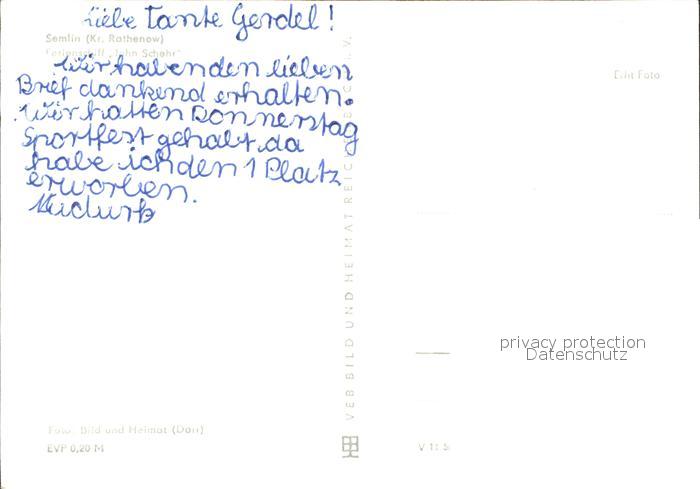 Liebe Tante Gerdel!
Semlin (Kr. Rathenow)
Ferienschiff „John Schehr“
Wir haben den lieben
Brief dankend erhalten.
Wir hatten Donnerstag
Sportfest gehabt, da
habe ich den 1 Platz
erworben.
Echt Foto
VEB BILD UND HEIMAT REICHENBACH I. V.
privacy protection
Datenschutz
Foto: Bild und Heimat (Dorr)
EVP 0,20 M
V 11 5